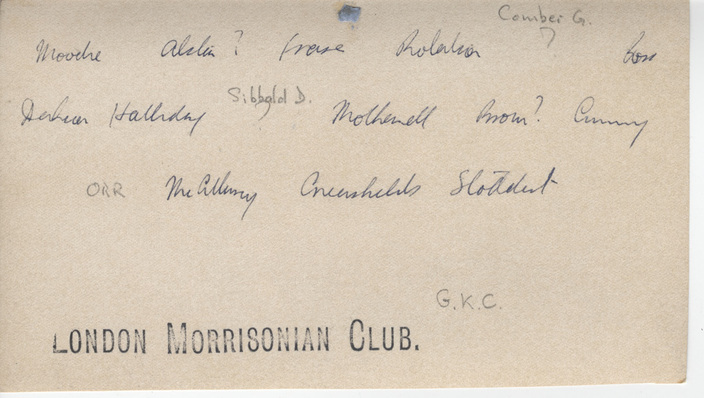 Comber G.
Moodie Alston? Fraser Robertson ? Ross
Halliday Sibbald D. Motherwell Brown? Cumming
ORR McGilvray Greenshields Stoddart
G.K.C.
LONDON MORRISONIAN CLUB.